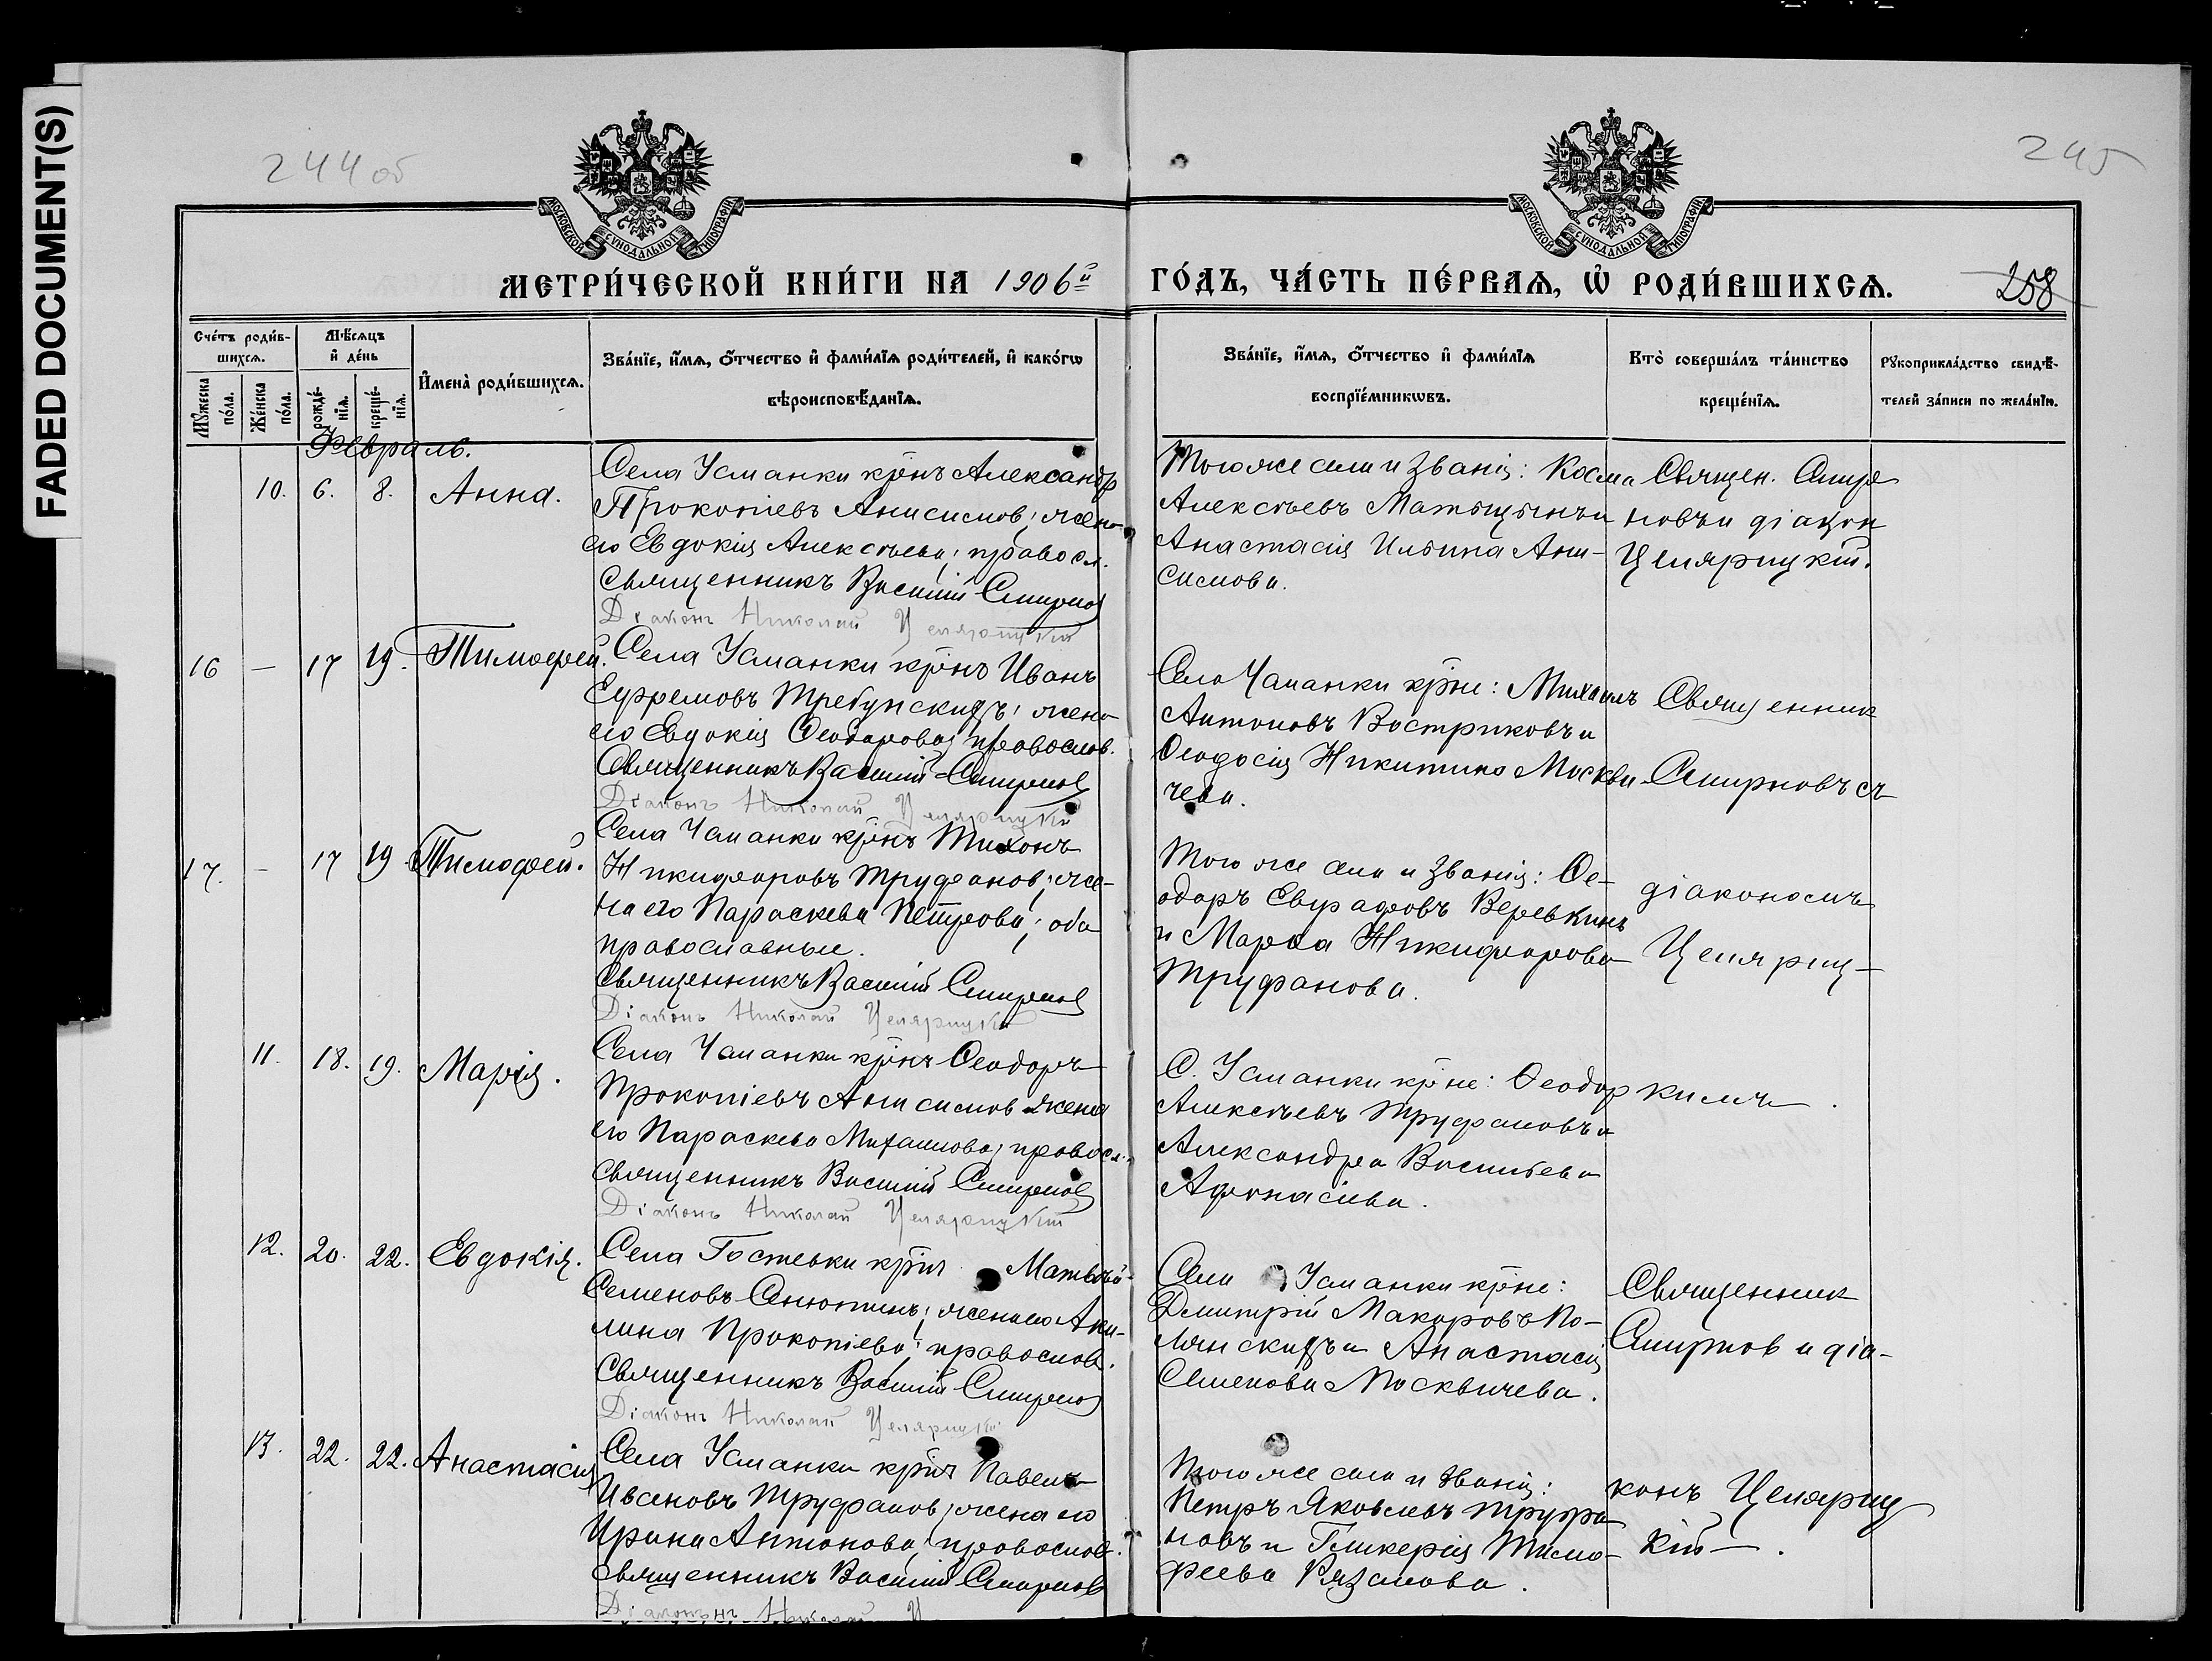 FADED DOCUMENT(S)
244об
245
МОСКОВСКОЙ СѴНОДАЛЬНОЙ ТИПОГРАФІИ
МОСКОВСКОЙ СѴНОДАЛЬНОЙ ТИПОГРАФІИ
МЕТРИ́ЧЕСКОЙ КНИ́ГИ НА 1906й
ГО́ДЪ, ЧА́СТЬ ПЕ́РВАѦ, Ѡ҆ РОДИ́ВШИХСѦ.
258
Сче́тъ роди́в-
шихсѧ.
Мꙋ́жеска
по́ла.
Же́нска
по́ла.
Мѣ́сѧцъ
и҆ де́нь
рожде́-
нїѧ.
креще́-
нїѧ.
И҆мена̀ роди́вшихсѧ.
Зва́нїе, и҆́мѧ, ѻ҆́тчество и҆ фами́лїѧ роди́телей, и҆ како́гѡ
вѣроисповѣ́данїѧ.
Зва́нїе, и҆́мѧ, ѻ҆́тчество и҆ фами́лїѧ
воспрїе́мникѡвъ.
Кто̀ соверша́лъ та́инство
креще́нїѧ.
Рꙋкоприкла́дство свидѣ́-
телей за́писи по жела́нїю.
Февраль.
10. 6. 8. Анна.
Села Усманки крнъ Александр
Прокопіевъ Анисимов; жена
его Евдокія Алексѣева; правосл.
Священникъ Василій Смирнов
Діаконъ Николай Целярицкій
Того же села и званія: Косма
Алексѣевъ Матыцынъ и
Анастасія Ильина Ани-
симова.
Священ. Смир
новъ и діакон
Целярицкій.
16 — 17 19. Тимофей.
Села Усманки крнъ Иванъ
Ефремовъ Требунскихъ; жена
его Евдокія Ѳеодорова; православ.
Священникъ Василій Смирнов
Діаконъ Николай Целярицкій
Села Чаманки крне: Михаилъ
Антоновъ Востриковъ и
Ѳеодосія Никитина Москви-
чева.
Священник
Смирновъ съ
17. — 17 19 Тимофей.
Села Чаманки крнъ Тихонъ
Никифоровъ Труфанов; же-
на его Параскева Петрова; оба
православные.
Священникъ Василій Смирнов
Діаконъ Николай Целярицкій
Того же села и званія: Ѳе-
одоръ Евграфовъ Веревкинъ
и Марѳа Никифорова
Труфанова.
діакономъ
Целяриц-
11. 18. 19. Марія.
Села Чаманки крнъ Ѳеодоръ
Прокопіевъ Анисимов жена
его Параскева Михаилова; правосл.
Священникъ Василій Смирнов
Діаконъ Николай Целярицкій
С. Усманки крне: Ѳеодор
Алексѣевъ Труфановъ и
Александра Васильева
Афонасіева.
кимъ.
12. 20. 22. Евдокія.
Села Гостевки крнъ Матвѣй
Семеновъ Сенютинъ; жена его Аку-
лина Прокопіева; православ.
Священникъ Василій Смирнов
Діаконъ Николай Целярицкій
Села Усманки крне:
Дмитрій Макаровъ По-
лянскихъ и Анастасія
Семенова Москвичева.
Священник
Смирнов и діа-
13. 22. 22. Анастасія
Села Усманки крнъ Павелъ
Ивановъ Труфанов; жена его
Ирина Антонова, православ.
Священникъ Василій Смирнов
Діаконъ Николай Ц
Того же села и званія:
Петръ Яковлевъ Труфа
новъ и Гликерія Тимо-
феева Рязанова.
конъ Целяриц
кій.